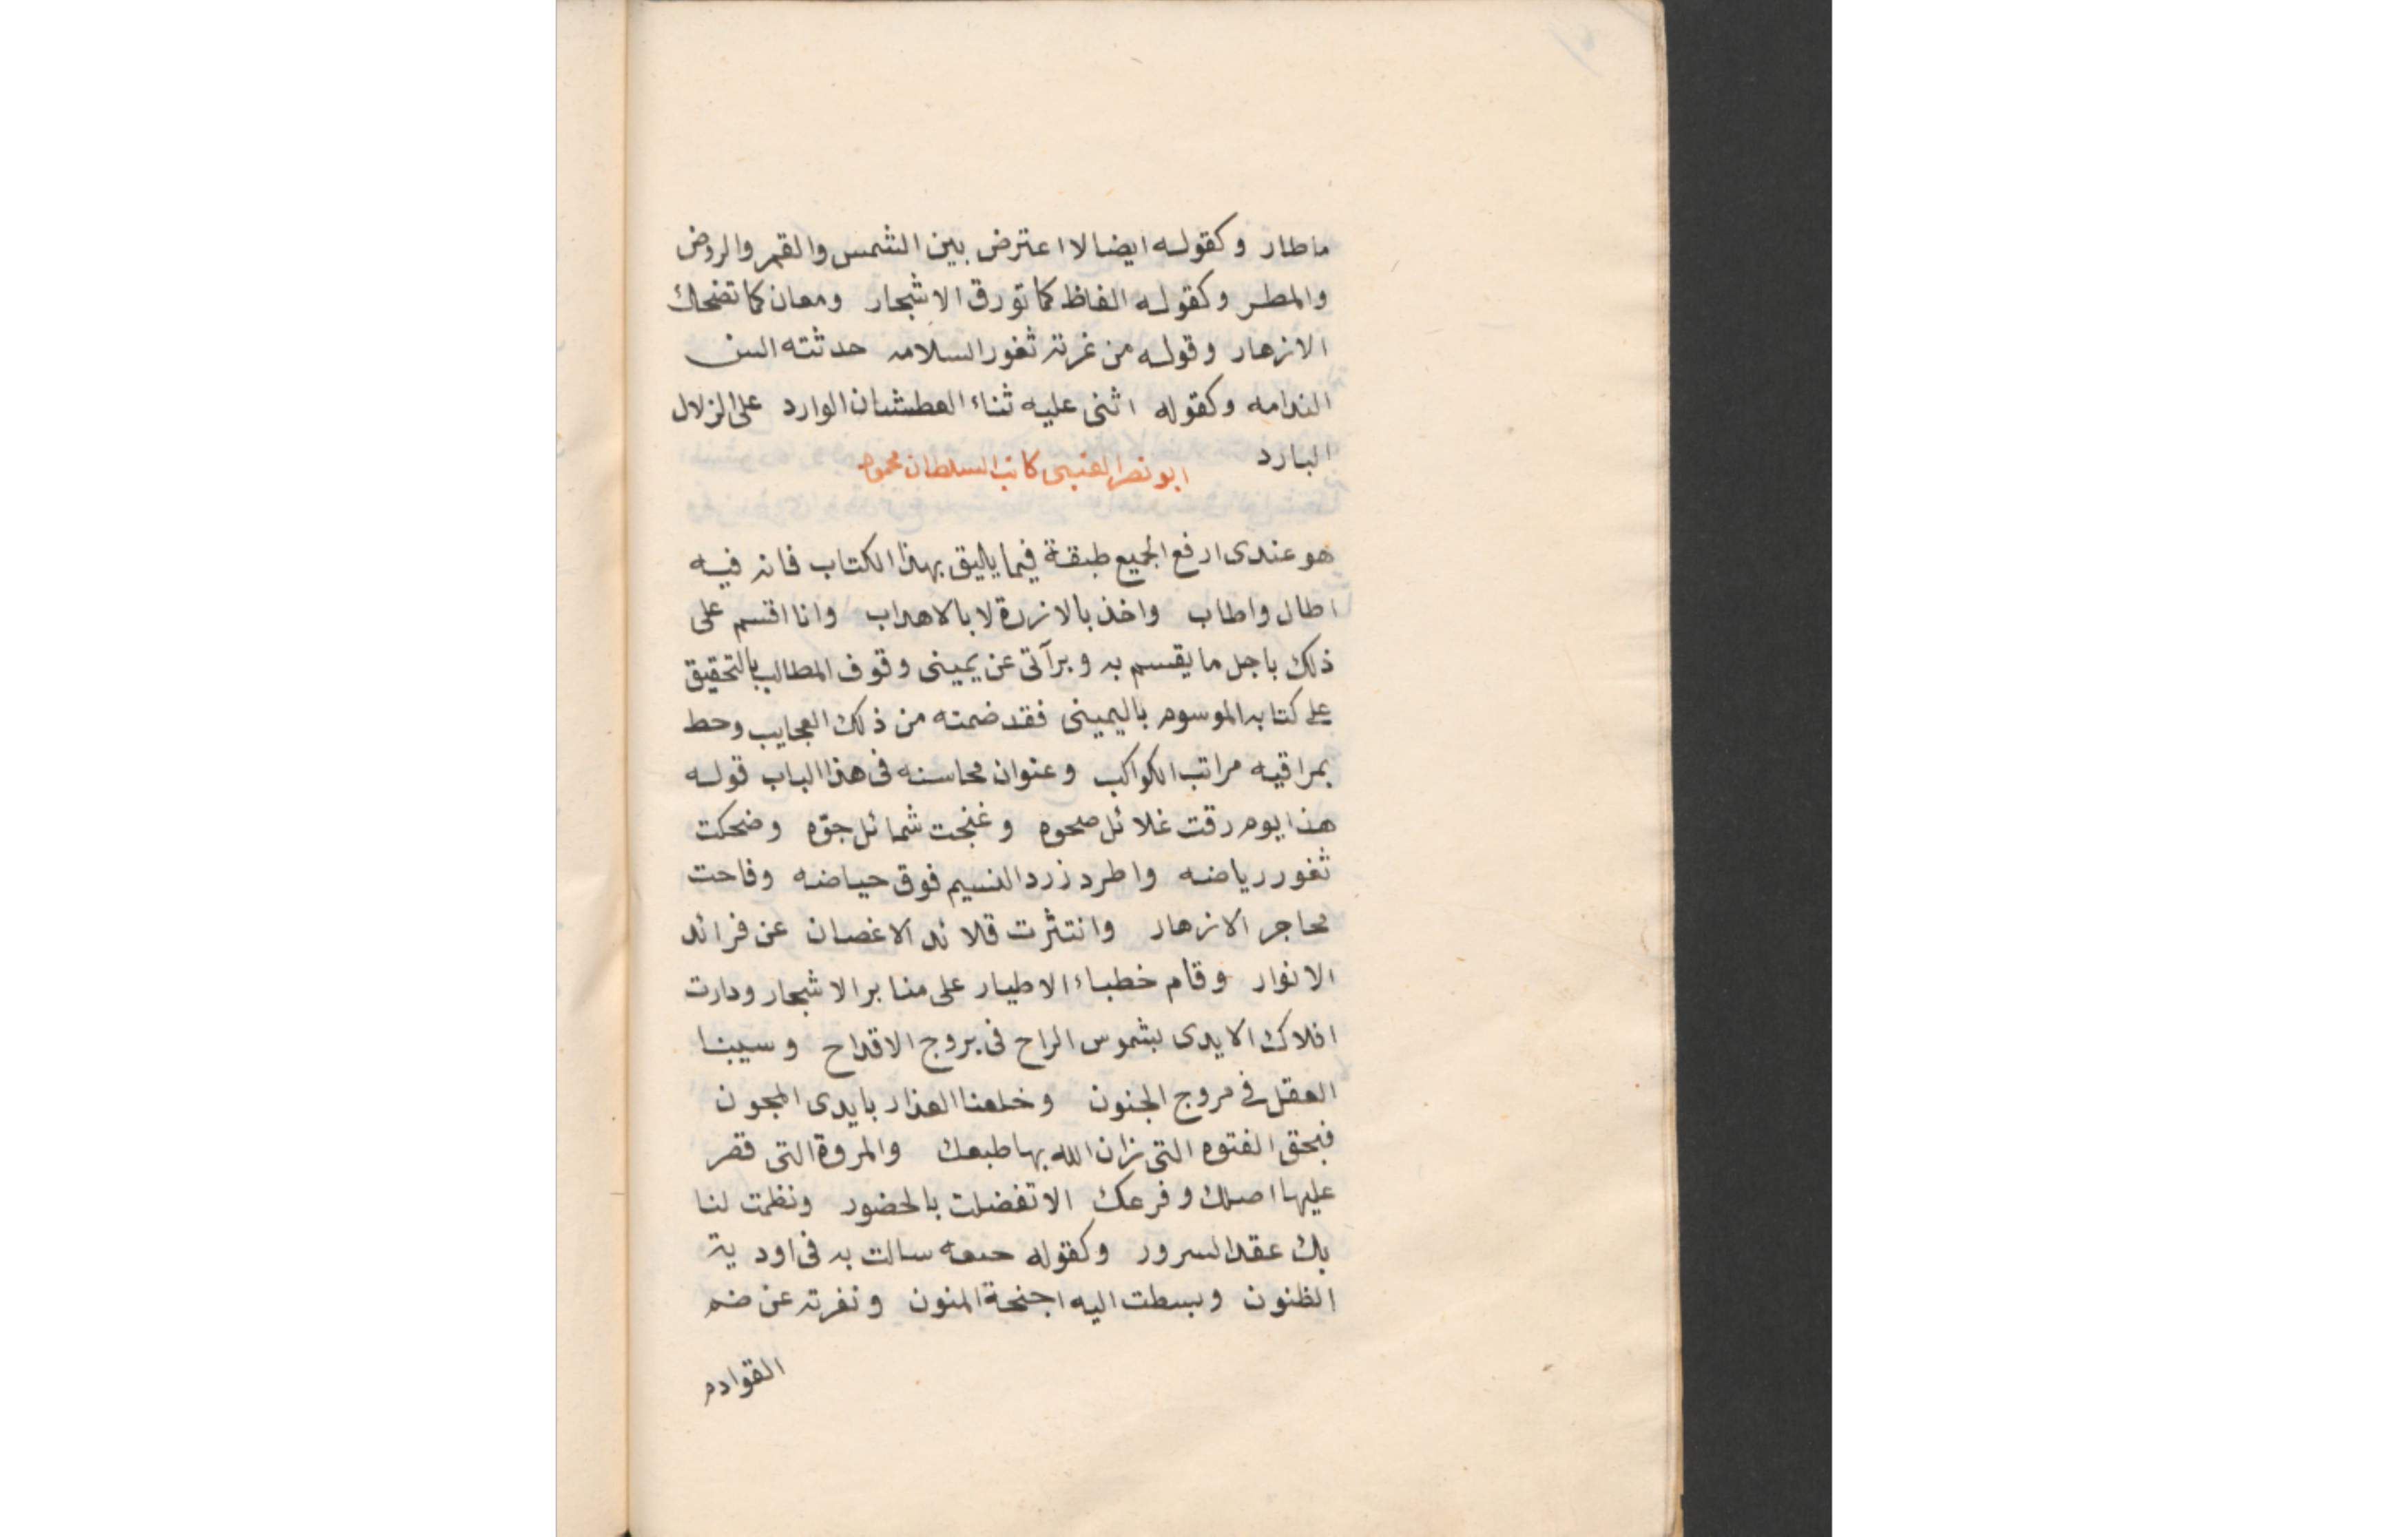 ماطار وكقوله ايضا لا اعترض بين الشمس والقمر والروض
والمطر وكقوله الفاظ كما تورق الاشجار ومعان كما تضحك
الازهار وقوله من غرته ثغور السلامه حدثته السن
الندامه وكقوله اثنى عليه ثناء العطشان الوارد على الزلال
البارد
ابو نصر العتبى كاتب السلطان محمود
هو عندى ارفع الجميع طبقة فيما يليق بهذا الكتاب فانه فيه
اطال واطاب واخذ بالازرة لا بالاهداب وانا اقسم على
ذلك باجل ما يقسم به وبرآتى عن يمينى وقوف المطالب بالتحقيق
على كتابه الموسوم باليمينى فقد ضمنه من ذلك العجايب وحط
بمراقيه مراتب الكواكب وعنوان محاسنه فى هذا الباب قوله
هذا يوم رقت غلائل صحوه وغنجت شمائل جوّه وضحكت
ثغور رياضه واطرد زرد النسيم فوق حياضه وفاحت
محاجر الازهار وانتثرت قلائد الاغصان عن فرائد
الانوار وقام خطباء الاطيار على منابر الاشجار ودارت
افلاك الايدى بشموس الراح فى بروج الاقداح وسيبنا
العقل فى مروج الجنون وخلعنا العذار بايدى المجون
فبحق الفتوه التى زان الله بها طبعك والمروة التى قصر
عليها اصلك وفرعك الا تفضلت بالحضور ونظمت لنا
بك عقد السرور وكقوله سالت به فى اودية
الظنون وبسطت اليه اجنحة المنون ونفرته عن ضم
القوادم